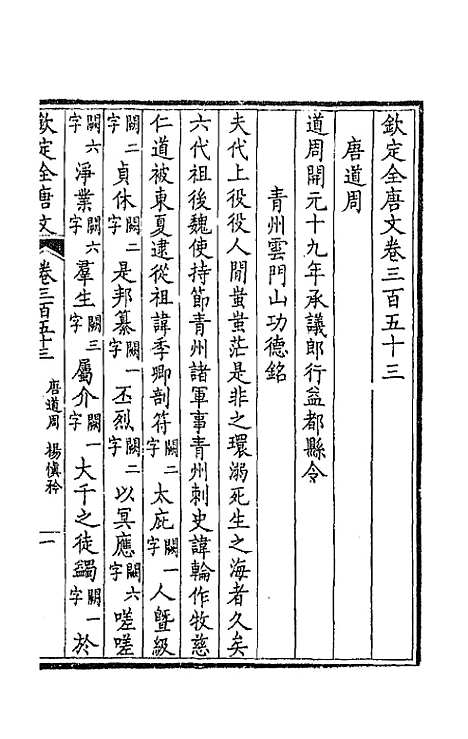 欽定全唐文卷三百五十三
唐道周
道周開元十九年承議郎行益都縣令
青州雲門山功德銘
夫代上役役人閒蚩蚩茫是非之環溺死生之海者久矣
六代祖後魏使持節青州諸軍事青州刺史諱輪作牧慈
仁道被東夏逮從祖諱季卿剖符闕二字太庇闕一字人曁級
闕二字貞休闕二字是邦纂闕一字丕烈闕二字以冥應闕六字嗟嗟
闕六字淨業闕六字羣生闕三字屬介闕一字大千之徒蠲闕一字於
欽定全唐文 卷三百五十三 唐道周 楊愼矜 一